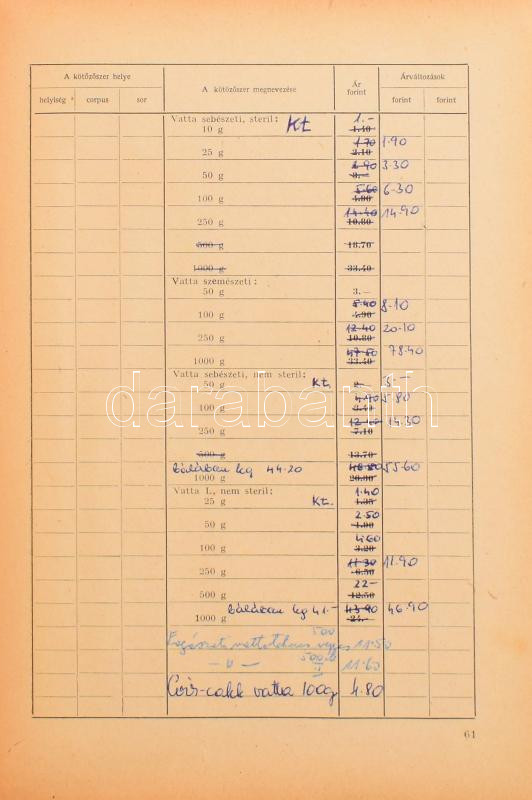 A kötözőszer helye A kötözőszer megnevezése Ár forint Árváltozások
helyiség corpus sor forint forint
Vatta sebészeti, steril: Kt 1.-
10 g 1.40
1.70 1.90
25 g 2.10
2.90 3.30
50 g 3.—
5.60 6.30
100 g 4.90
14.40 14.90
250 g 10.80
500 g 18.70
1000 g 33.40
Vatta szemészeti:
50 g 3.—
5.40 8.10
100 g 4.90
12.40 20.10
250 g 10.80
78.40
1000 g 33.40
Vatta sebészeti, nem steril: 3.-
50 g Kt. 2.—
4.70 5.80
100 g 3.40
14.30
250 g 7.10
500 g 13.70
bálában kg 44.20 55.60
1000 g 20.80
Vatta I., nem steril: 1.40
25 g Kt. 1.35
2.50
50 g 1.90
4.60
100 g 3.20
11.30 11.90
250 g 6.50
22-
500 g 12.50
bálában kg 41.- 43.90 46.90
1000 g 24.—
500
11.50
500
— " — II 11.60
vatta 100g 4.80
61
darabanth